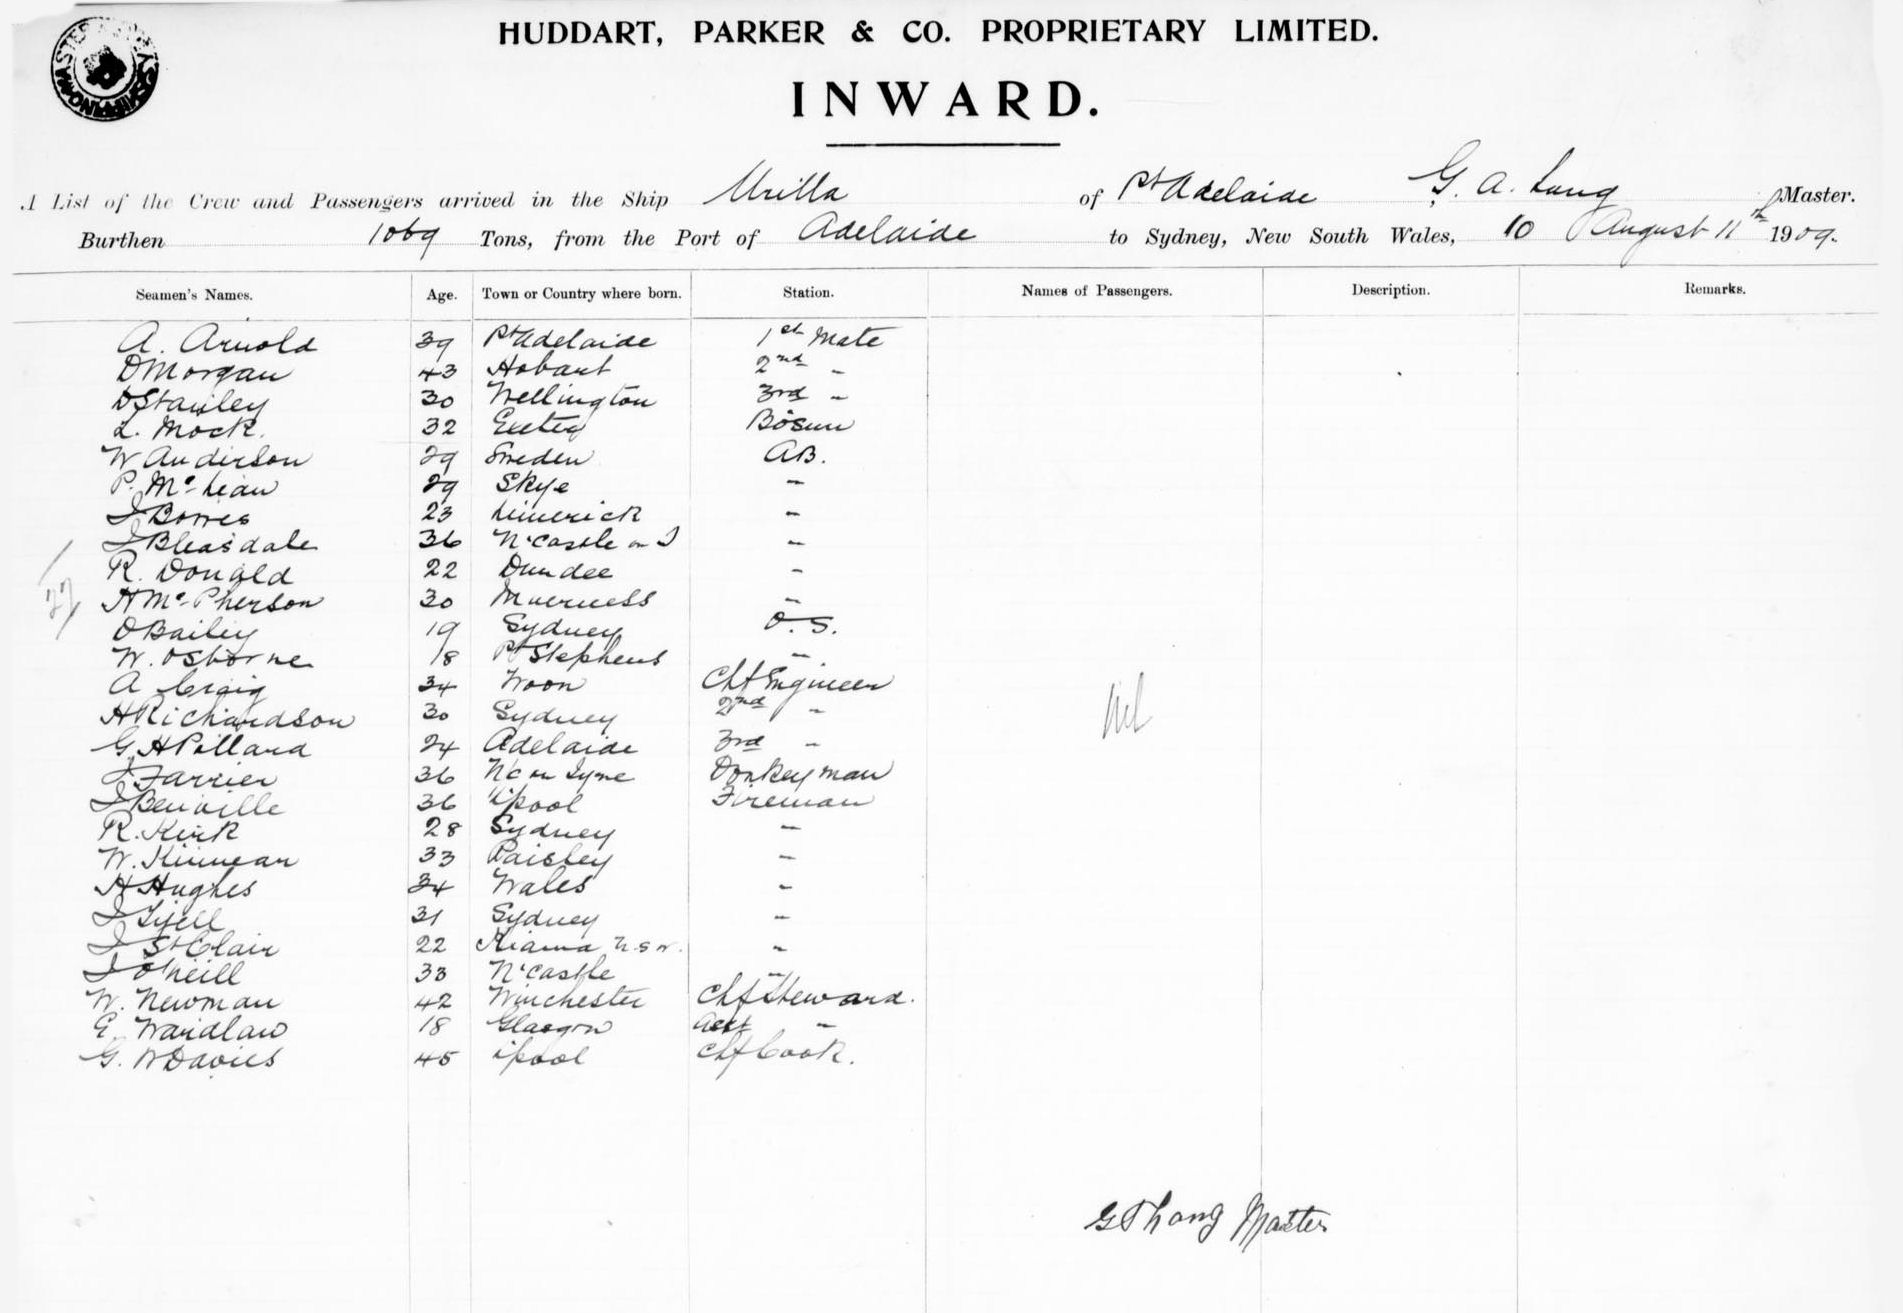 HUDDART, PARKER & CO. PROPRIETARY LIMITED.
INWARD.
A List of the Crew and Passengers arrived in the Ship Urilla of Pt Adelaide G. A. Lang Master.
Burthen 1069 Tons, from the Port of Adelaide to Sydney, New South Wales, 10 August 11th 1909.
Seamen's Names. Age. Town or Country where born. Station. Names of Passengers. Description. Remarks.
A. Arnold 39 Pt Adelaide 1st Mate
D Morgan 43 Hobart 2nd "
D Stanley 30 Wellington 3rd "
L. Mock. 32 Exeter Bosun
W Anderson 29 Sweden AB.
P. McLean 29 Skye "
J Bowes 23 Limerick "
J Bleasdale 36 N'castle on T "
R. Donald 22 Dundee "
H McPherson 30 Inverness "
O Bailey 19 Sydney O.S.
W. Osborne 18 Pt Stephens "
A Craig 34 Troon Chf Engineer
H Richardson 30 Sydney 2nd "
G. H Pollard 24 Adelaide 3rd "
J Farrier 36 N'c on Tyne Donkeyman
J Benville 36 L'pool Fireman
R. Kirk 28 Sydney "
W. Kinnear 33 Paisley "
H Hughes 34 Wales "
J Tyell 31 Sydney "
J St Clair 22 Kiama N.S.W. "
J O'Neill 33 N'castle "
W. Newman 42 Winchester Chf Steward.
E. Wardlaw 18 Glasgow Asst "
G. W Davies 45 L'pool Chf Cook.
27
Nil
Lang Master